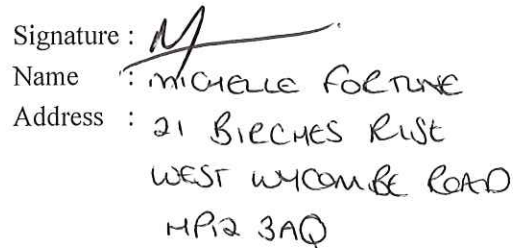 Signature :
Name : MICHELLE FORTUNE
Address : 21 BIRCHES RISE
WEST WYCOMBE ROAD
HP12 3AQ